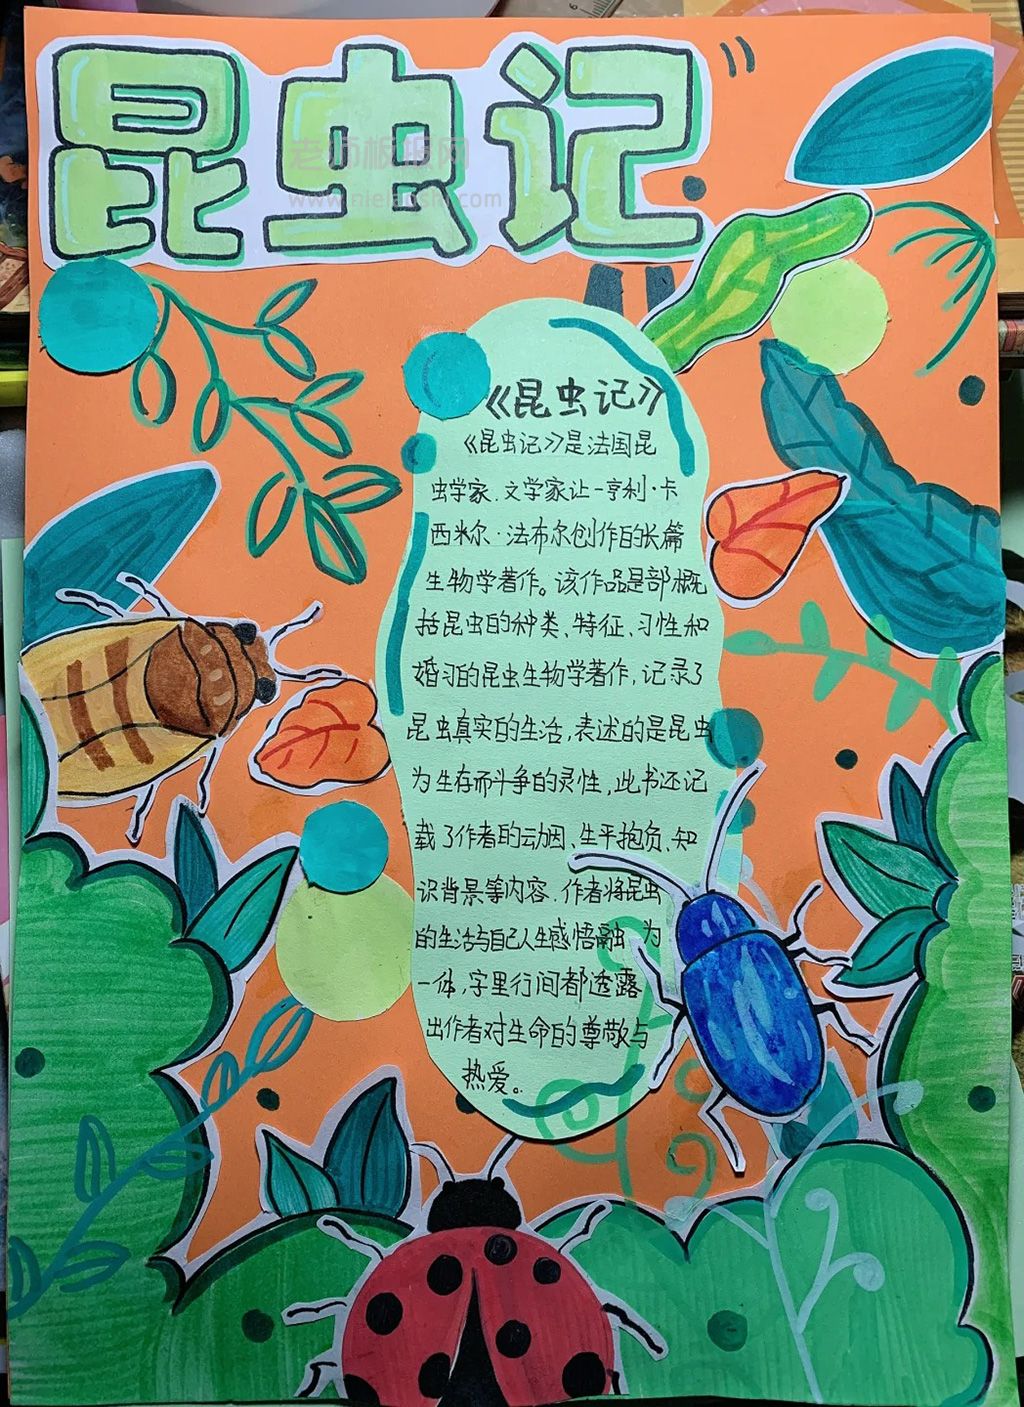 昆虫记
老师板报网
《昆虫记》
《昆虫记》是法国昆
虫学家.文学家让-亨利·卡
西米尔·法布尔创作的长篇
生物学著作。该作品是部概
括昆虫的种类、特征、习性和
婚习的昆虫生物学著作,记录了
昆虫真实的生活,表述的是昆虫
为生存而斗争的灵性,此书还记
载了作者的动因、生平抱负、知
识背景等内容.作者将昆虫
的生活与自己人生感悟融 为
一体,字里行间都透露
出作者对生命的尊敬与
热爱。